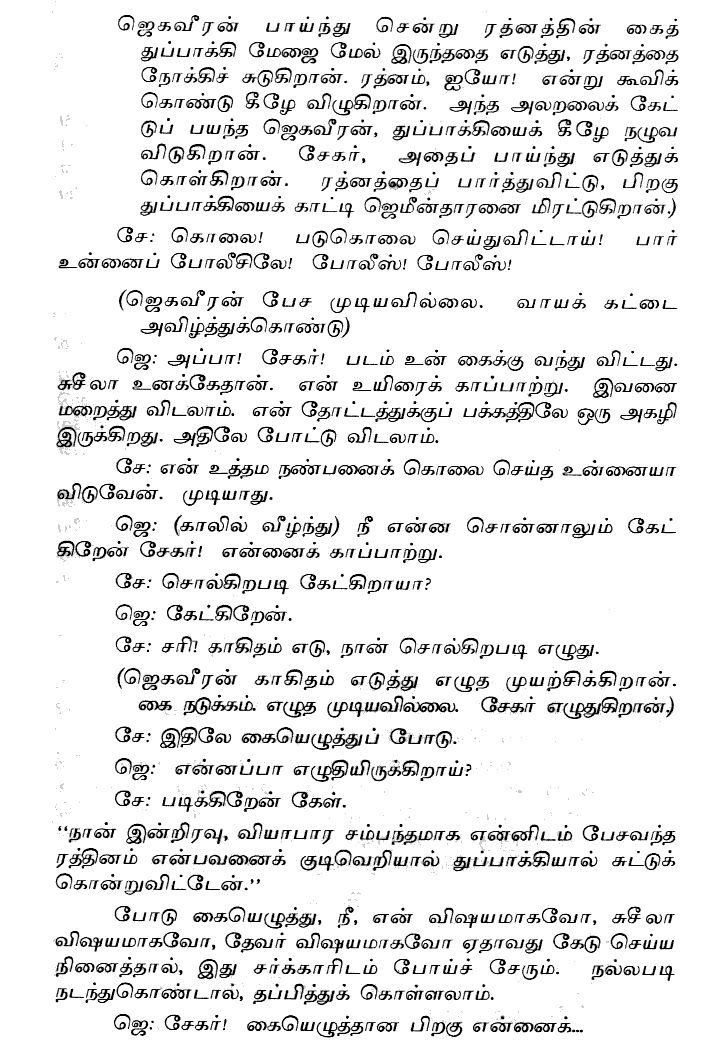 ஜெகவீரன் பாய்ந்து சென்று ரத்னத்தின் கைத்
துப்பாக்கி மேஜை மேல் இருந்ததை எடுத்து, ரத்னத்தை
நோக்கிச் சுடுகிறான். ரத்னம், ஐயோ! என்று கூவிக்
கொண்டு கீழே விழுகிறான். அந்த அலறலைக் கேட்
டுப் பயந்த ஜெகவீரன், துப்பாக்கியைக் கீழே நழுவ
விடுகிறான். சேகர், அதைப் பாய்ந்து எடுத்துக்
கொள்கிறான். ரத்னத்தைப் பார்த்துவிட்டு, பிறகு
துப்பாக்கியைக் காட்டி ஜெமீன்தாரனை மிரட்டுகிறான்.)
சே: கொலை! படுகொலை செய்துவிட்டாய்! பார்
உன்னைப் போலீசிலே! போலீஸ்! போலீஸ்!
(ஜெகவீரன் பேச முடியவில்லை. வாயக் கட்டை
அவிழ்த்துக்கொண்டு)
ஜெ: அப்பா! சேகர்! படம் உன் கைக்கு வந்து விட்டது.
சுசீலா உனக்கேதான். என் உயிரைக் காப்பாற்று. இவனை
மறைத்து விடலாம். என் தோட்டத்துக்குப் பக்கத்திலே ஒரு அகழி
இருக்கிறது. அதிலே போட்டு விடலாம்.
சே: என் உத்தம நண்பனைக் கொலை செய்த உன்னையா
விடுவேன். முடியாது.
ஜெ: (காலில் வீழ்ந்து) நீ என்ன சொன்னாலும் கேட்
கிறேன் சேகர்! என்னைக் காப்பாற்று.
சே: சொல்கிறபடி கேட்கிறாயா?
ஜெ: கேட்கிறேன்.
சே: சரி! காகிதம் எடு, நான் சொல்கிறபடி எழுது.
(ஜெகவீரன் காகிதம் எடுத்து எழுத முயற்சிக்கிறான்.
கை நடுக்கம். எழுத முடியவில்லை. சேகர் எழுதுகிறான்.)
சே: இதிலே கையெழுத்துப் போடு.
ஜெ: என்னப்பா எழுதியிருக்கிறாய்?
சே: படிக்கிறேன் கேள்.
“நான் இன்றிரவு, வியாபார சம்பந்தமாக என்னிடம் பேசவந்த
ரத்தினம் என்பவனைக் குடிவெறியால் துப்பாக்கியால் சுட்டுக்
கொன்றுவிட்டேன்.”
போடு கையெழுத்து, நீ, என் விஷயமாகவோ, சுசீலா
விஷயமாகவோ, தேவர் விஷயமாகவோ ஏதாவது கேடு செய்ய
நினைத்தால், இது சர்க்காரிடம் போய்ச் சேரும். நல்லபடி
நடந்துகொண்டால், தப்பித்துக் கொள்ளலாம்.
ஜெ: சேகர்! கையெழுத்தான பிறகு என்னைக்...